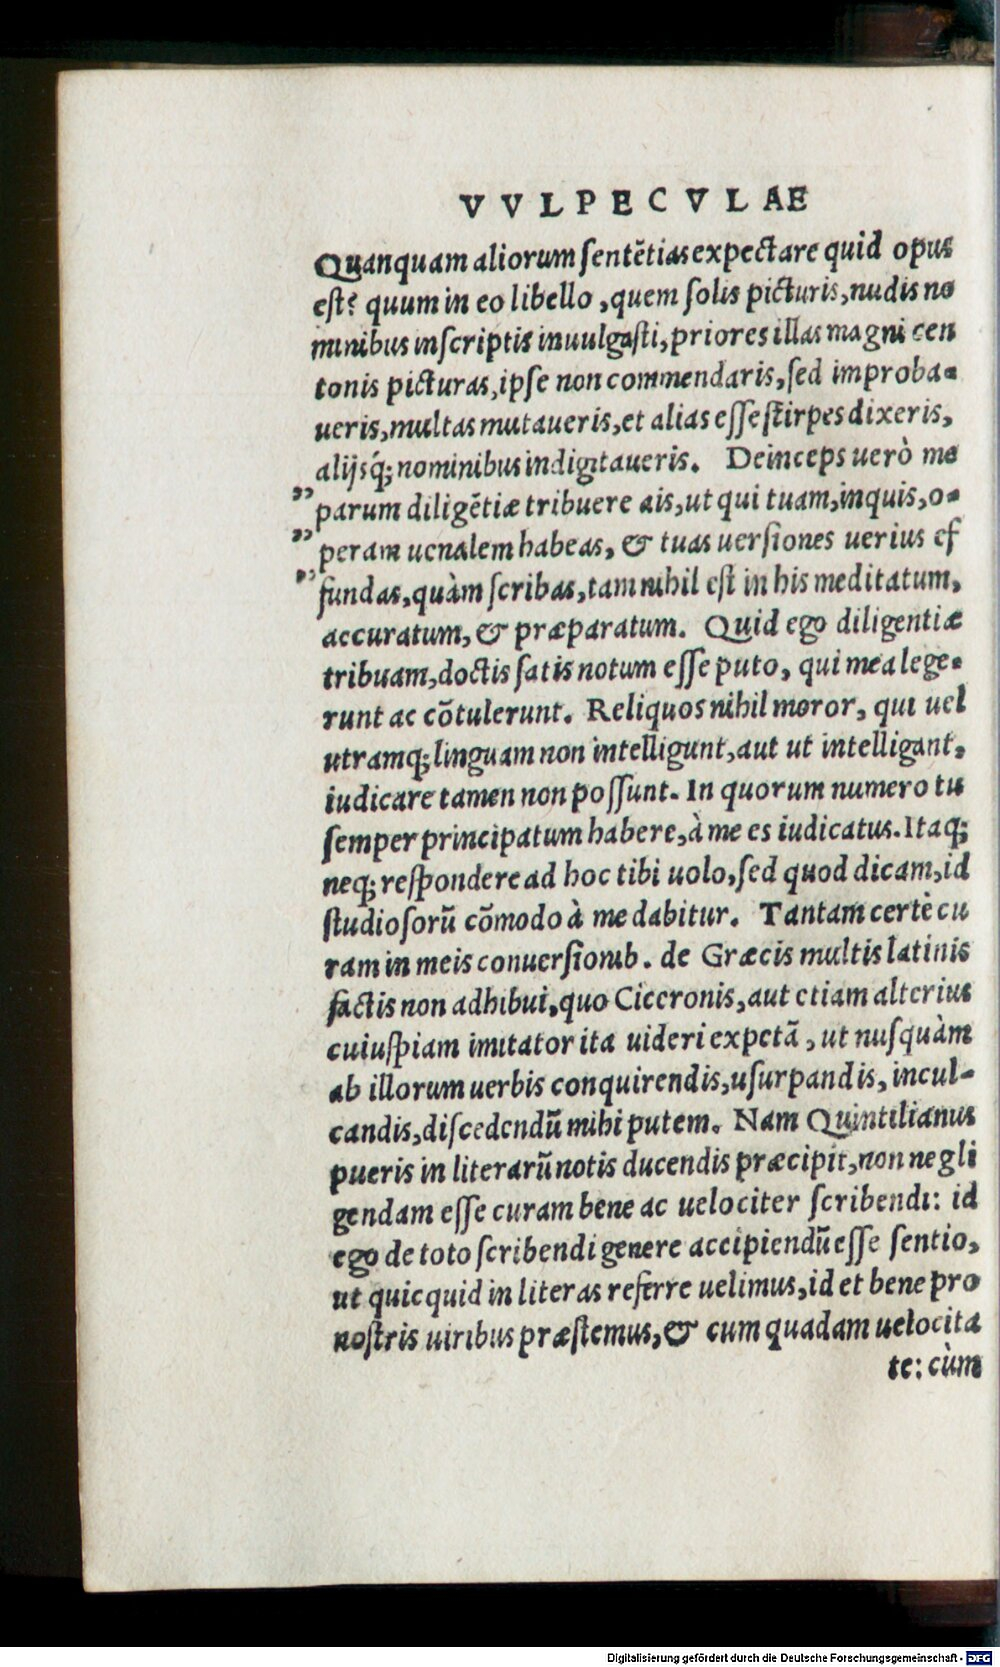 VVLPECVLAE
Quanquam aliorum ſentẽtias expectare quid opus
eſt? quum in eo libello, quem ſolis picturis, nudis no
minibus inſcriptis inuulgaſti, priores illas magni cen
tonis picturas, ipſe non commendaris, ſed improba-
ueris, multas mutaueris, et alias eſſe ſtirpes dixeris,
alijsq́; nominibus indigitaueris. Deinceps uerò me
" parum diligẽtiæ tribuere ais, ut qui tuam, inquis, o-
" peram uenalem habeas, & tuas uerſiones uerius ef
" fundas, quàm ſcribas, tam nihil eſt in his meditatum,
accuratum, & præparatum. Quid ego diligentiæ
tribuam, doctis ſatis notum eſſe puto, qui mea lege-
runt ac cõtulerunt. Reliquos nihil moror, qui uel
utramq; linguam non intelligunt, aut ut intelligant,
iudicare tamen non poſſunt. In quorum numero tu
ſemper principatum habere, à me es iudicatus. Itaq;
neq; reſpondere ad hoc tibi uolo, ſed quod dicam, id
ſtudioſorũ cõmodo à me dabitur. Tantam certè cu
ram in meis conuerſionib. de Græcis multis latinis
factis non adhibui, quo Ciceronis, aut etiam alterius
cuiuſpiam imitator ita uideri expetã, ut nuſquàm
ab illorum uerbis conquirendis, uſurpandis, incul-
candis, diſcedendũ mihi putem. Nam Quintilianus
pueris in literarũ notis ducendis præcipit, non negli
gendam eſſe curam bene ac uelociter ſcribendi: id
ego de toto ſcribendi genere accipiendũ eſſe ſentio,
ut quicquid in literas referre uelimus, id et bene pro
noſtris uiribus præſtemus, & cum quadam uelocita
te: cùm
Digitalisierung gefördert durch die Deutsche Forschungsgemeinschaft - DFG